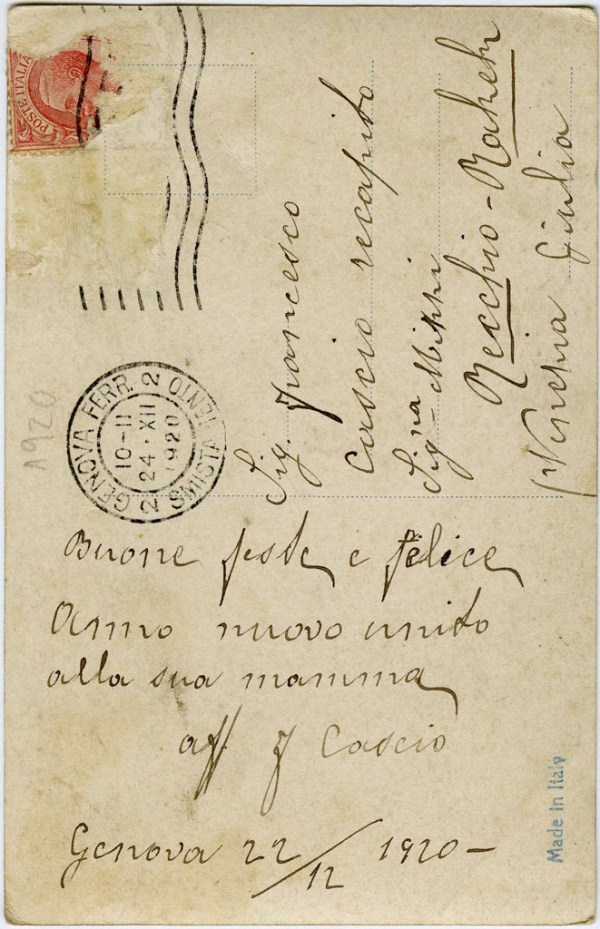 POSTE ITALIA
GENOVA FERR. 2
SMISTAMENTO 2
10-11
24·XII
1920
1920
Sig. Francesco
Cascio recapito
Sig.na Mippi
Recchio-
(Venezia Giulia
Buone feste e felice
Anno nuovo unito
alla sua mamma
aff. F Cascio
Genova 22/12 1920-
Made in Italy